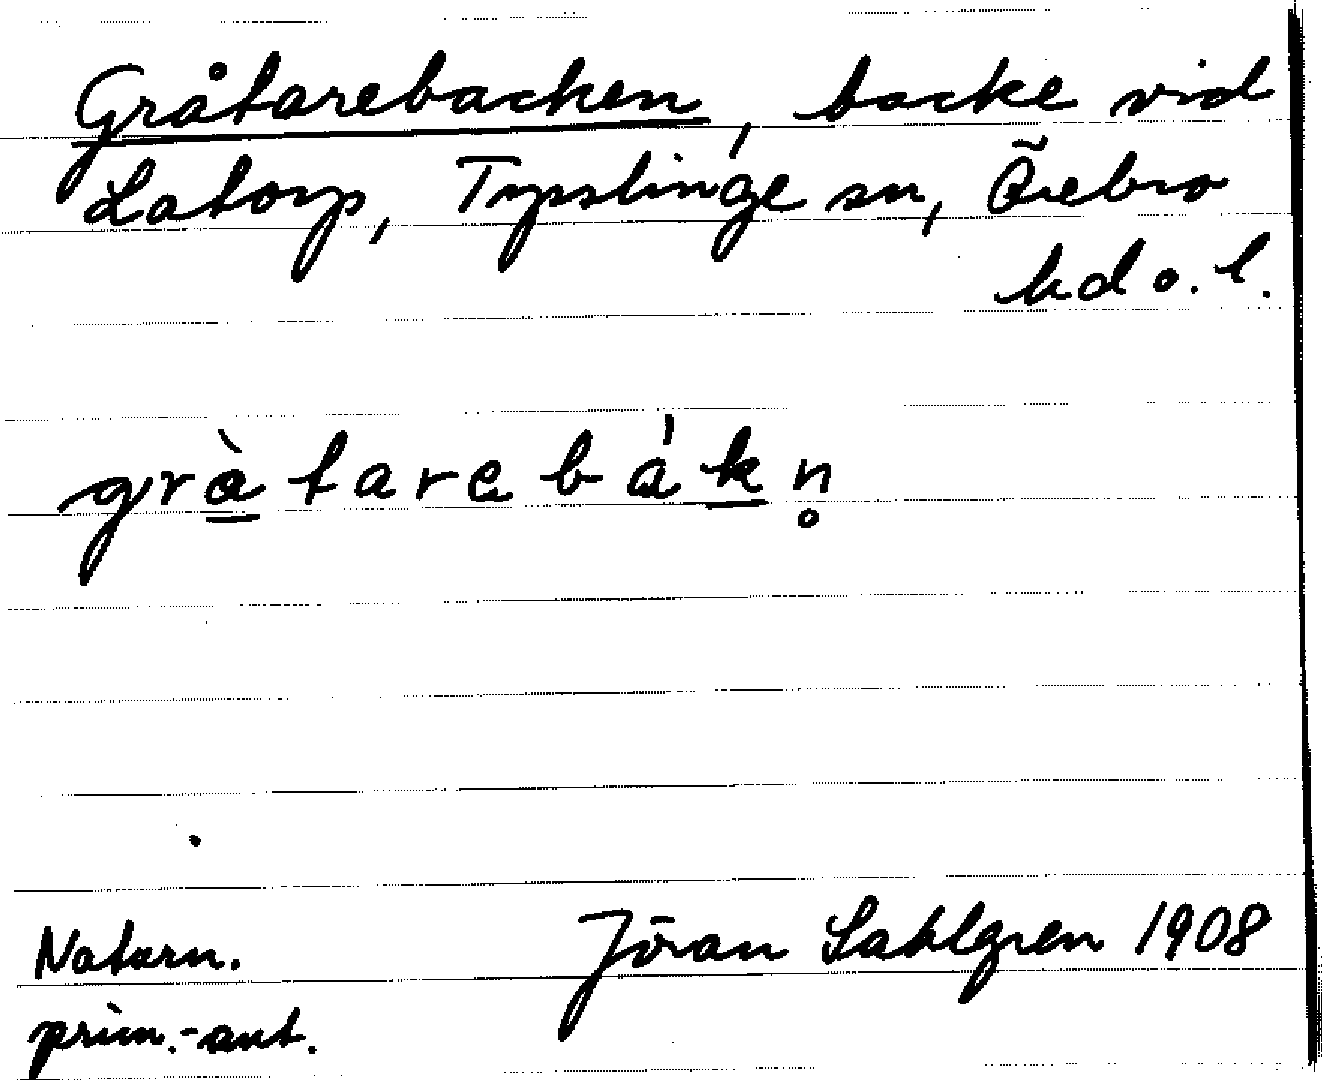 Gråtarebacken, backe vid
Latorp, Tysslinge sn, Örebro
hd o. l.
gràtarebákn̥
Naturn. Jöran Sahlgren 1908
prim.-ant.